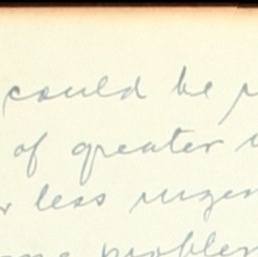 could be
of greater
less urgen
problem